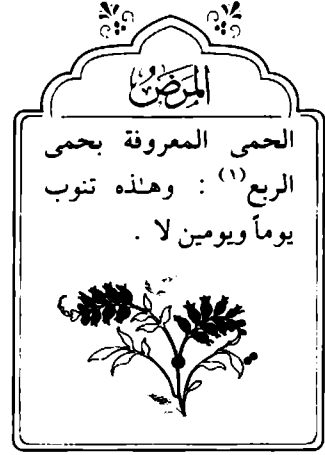 المَرَضُ
الحمى المعروفة بحمى
الربع(١) : وهـٰذه تنوب
يوماً ويومين لا .